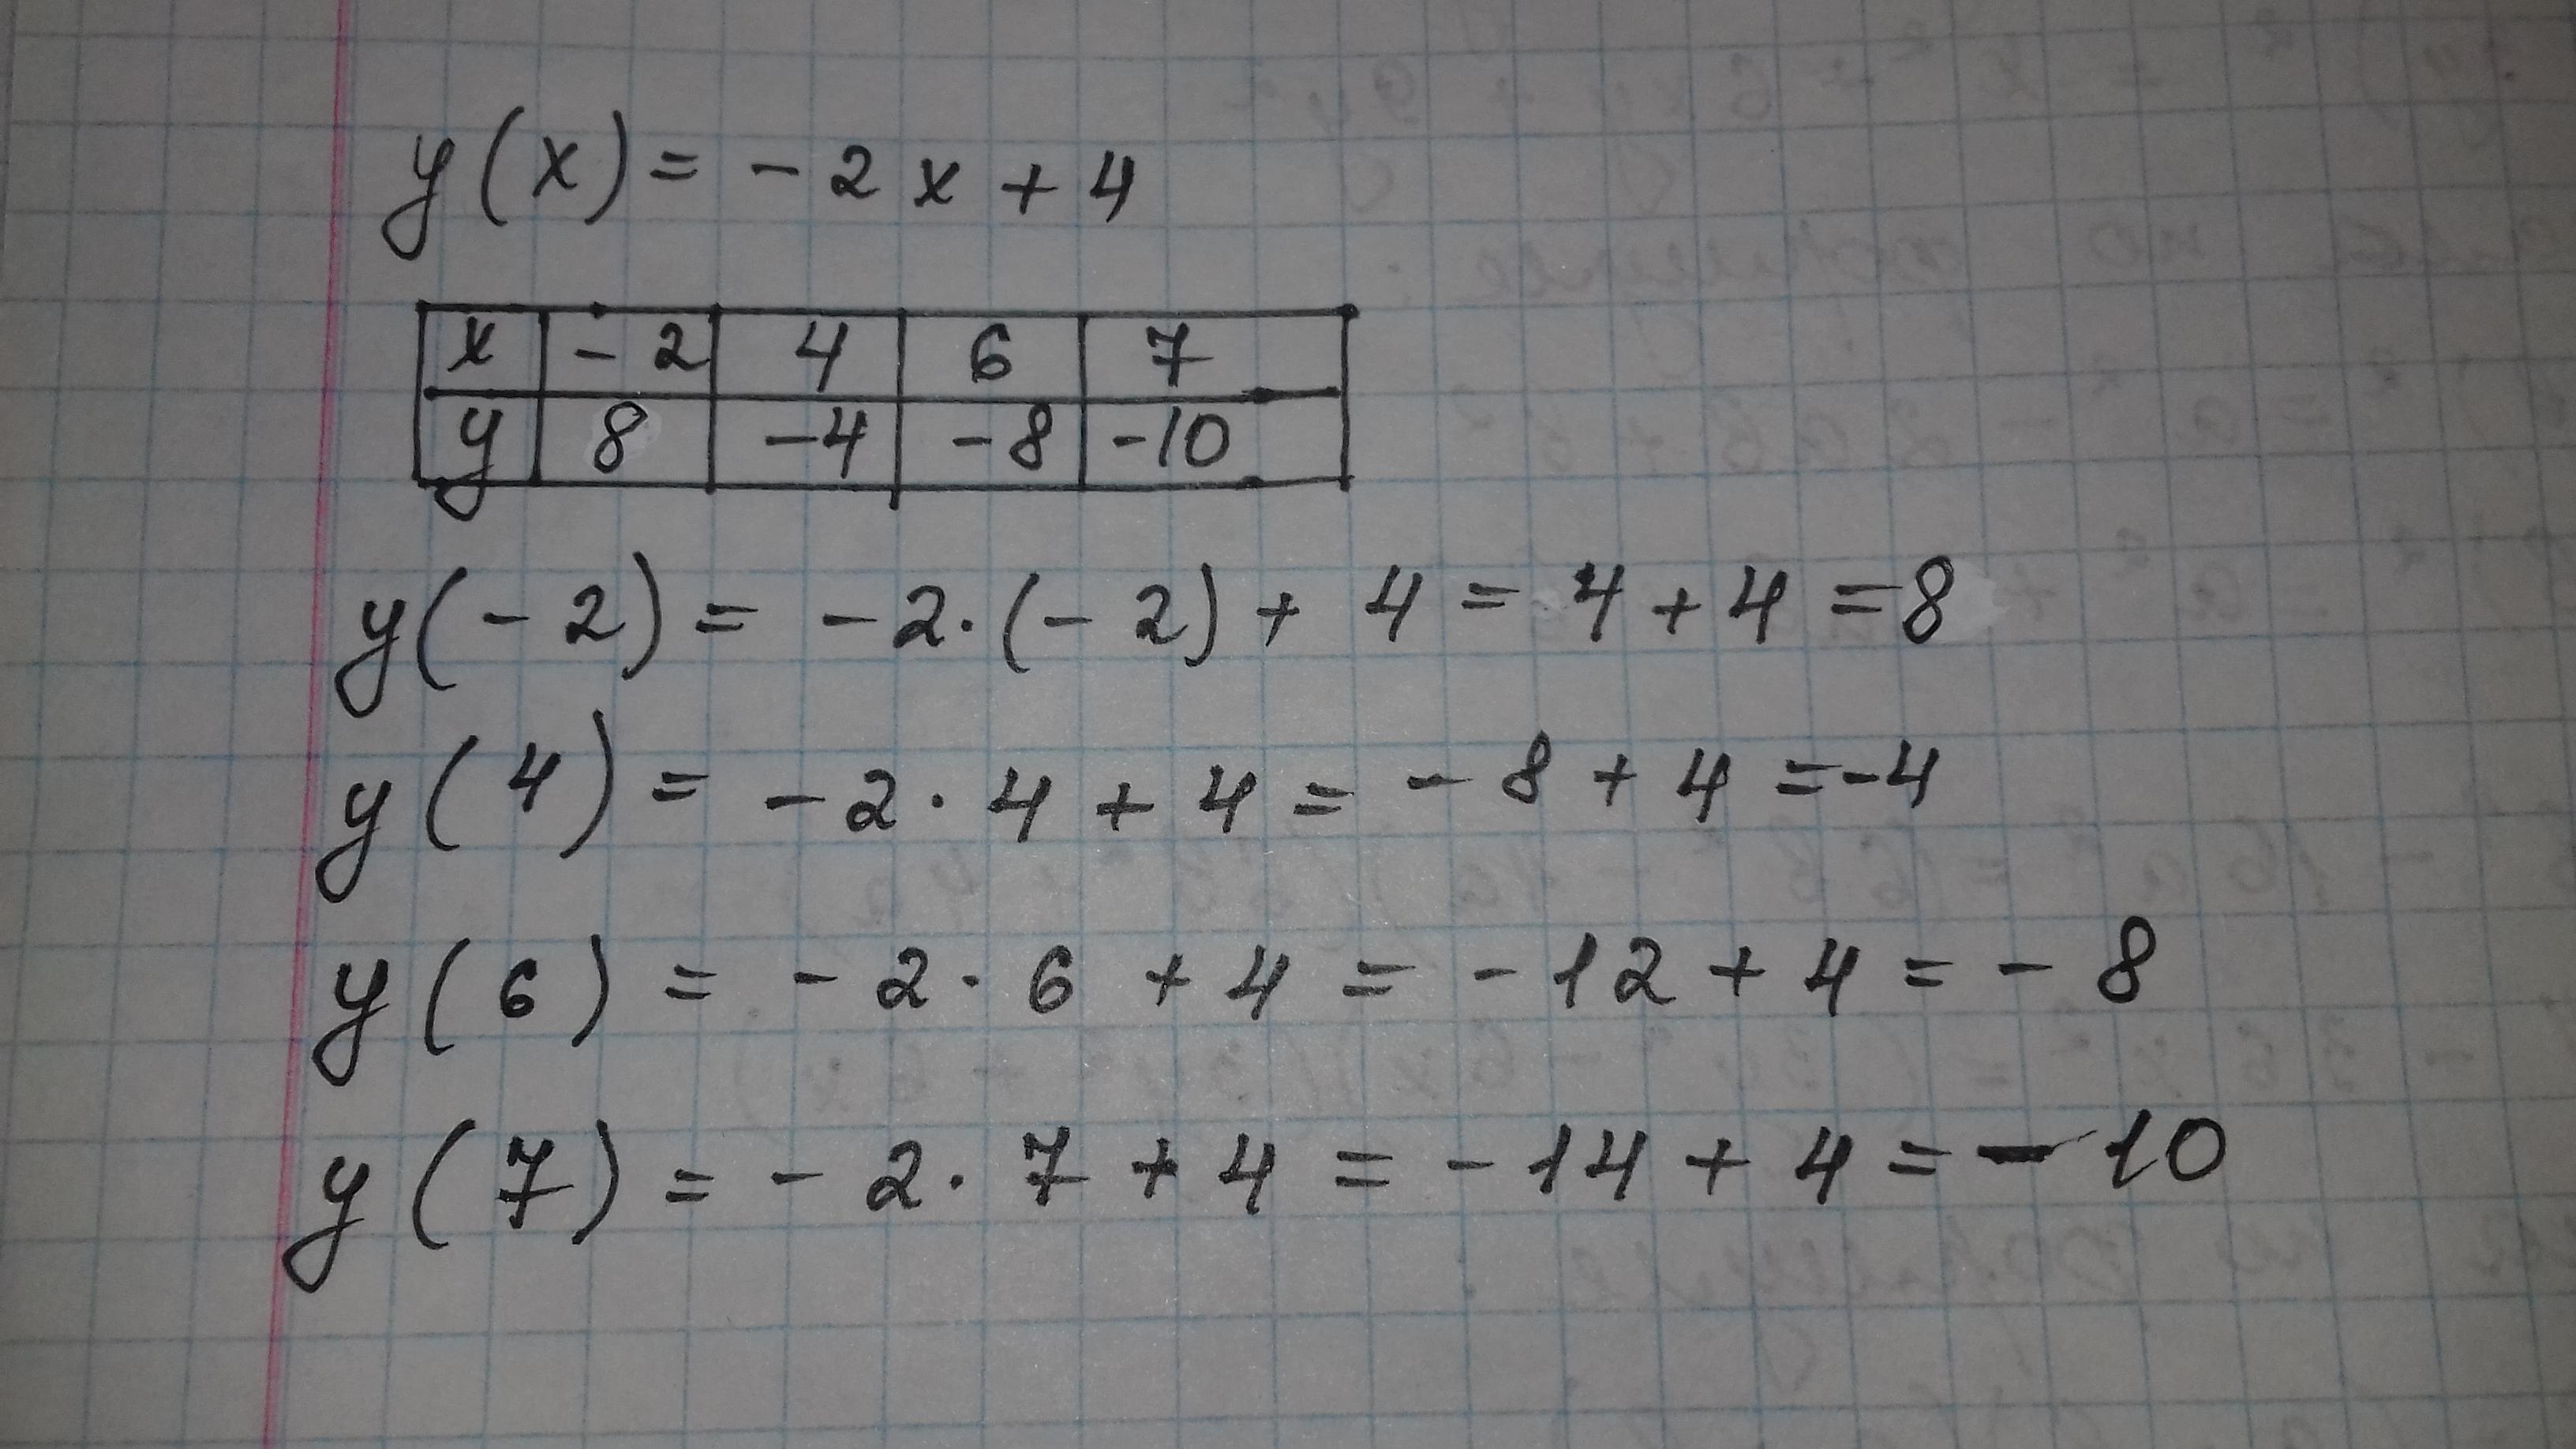 y(x) = -2x + 4
x -2 4 6 7
y 8 -4 -8 -10
y(-2) = -2·(-2) + 4 = 4 + 4 = 8
y(4) = -2·4 + 4 = -8 + 4 = -4
y(6) = -2·6 + 4 = -12 + 4 = -8
y(7) = -2·7 + 4 = -14 + 4 = -10